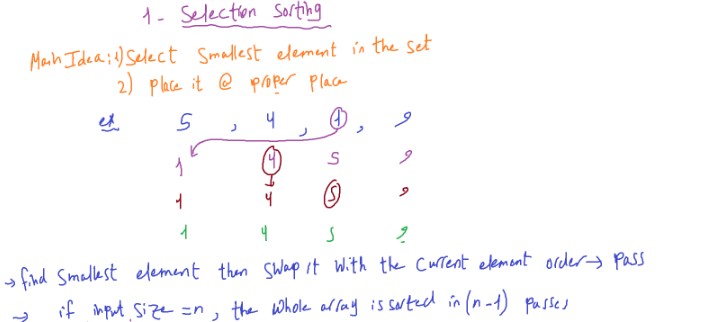 1- Selection Sorting
Main Idea: 1) Select Smallest element in the set
2) place it @ proper place
ex 5 , 4 , 1 , 9
1 4 5 9
1 4 5 9
1 4 5 9
→ find Smallest element then swap it with the current element order → pass
→ if input size = n , the whole array is sorted in (n-1) passes